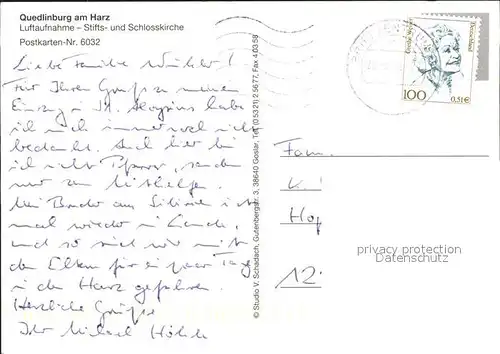 Quedlinburg am Harz
Luftaufnahme – Stifts- und Schlosskirche
Postkarten-Nr. 6032
Liebe Familie
Für Ihren Gruß zu meinem
Einzug in St. Aloysius habe
ich mich immer noch nicht
bedankt. Auch hier bin
ich nicht Pfarrer, sondern
nur zur Mithilfe.
Mein Bruder aus Sibirien ist
mal wieder im Lande,
und so sind wir mit
den Eltern für ein paar Tage
in den Harz gefahren.
Herzliche Grüße
Ihr Michael
© Studio V. Schadach, Gutenbergstr. 3, 38640 Goslar, Tel. (0 53 21) 2 56 77, Fax 4 03 58
Deutschland
100
0,51€
Fam.
K.
12
privacy protection
DELCAMPE.NET